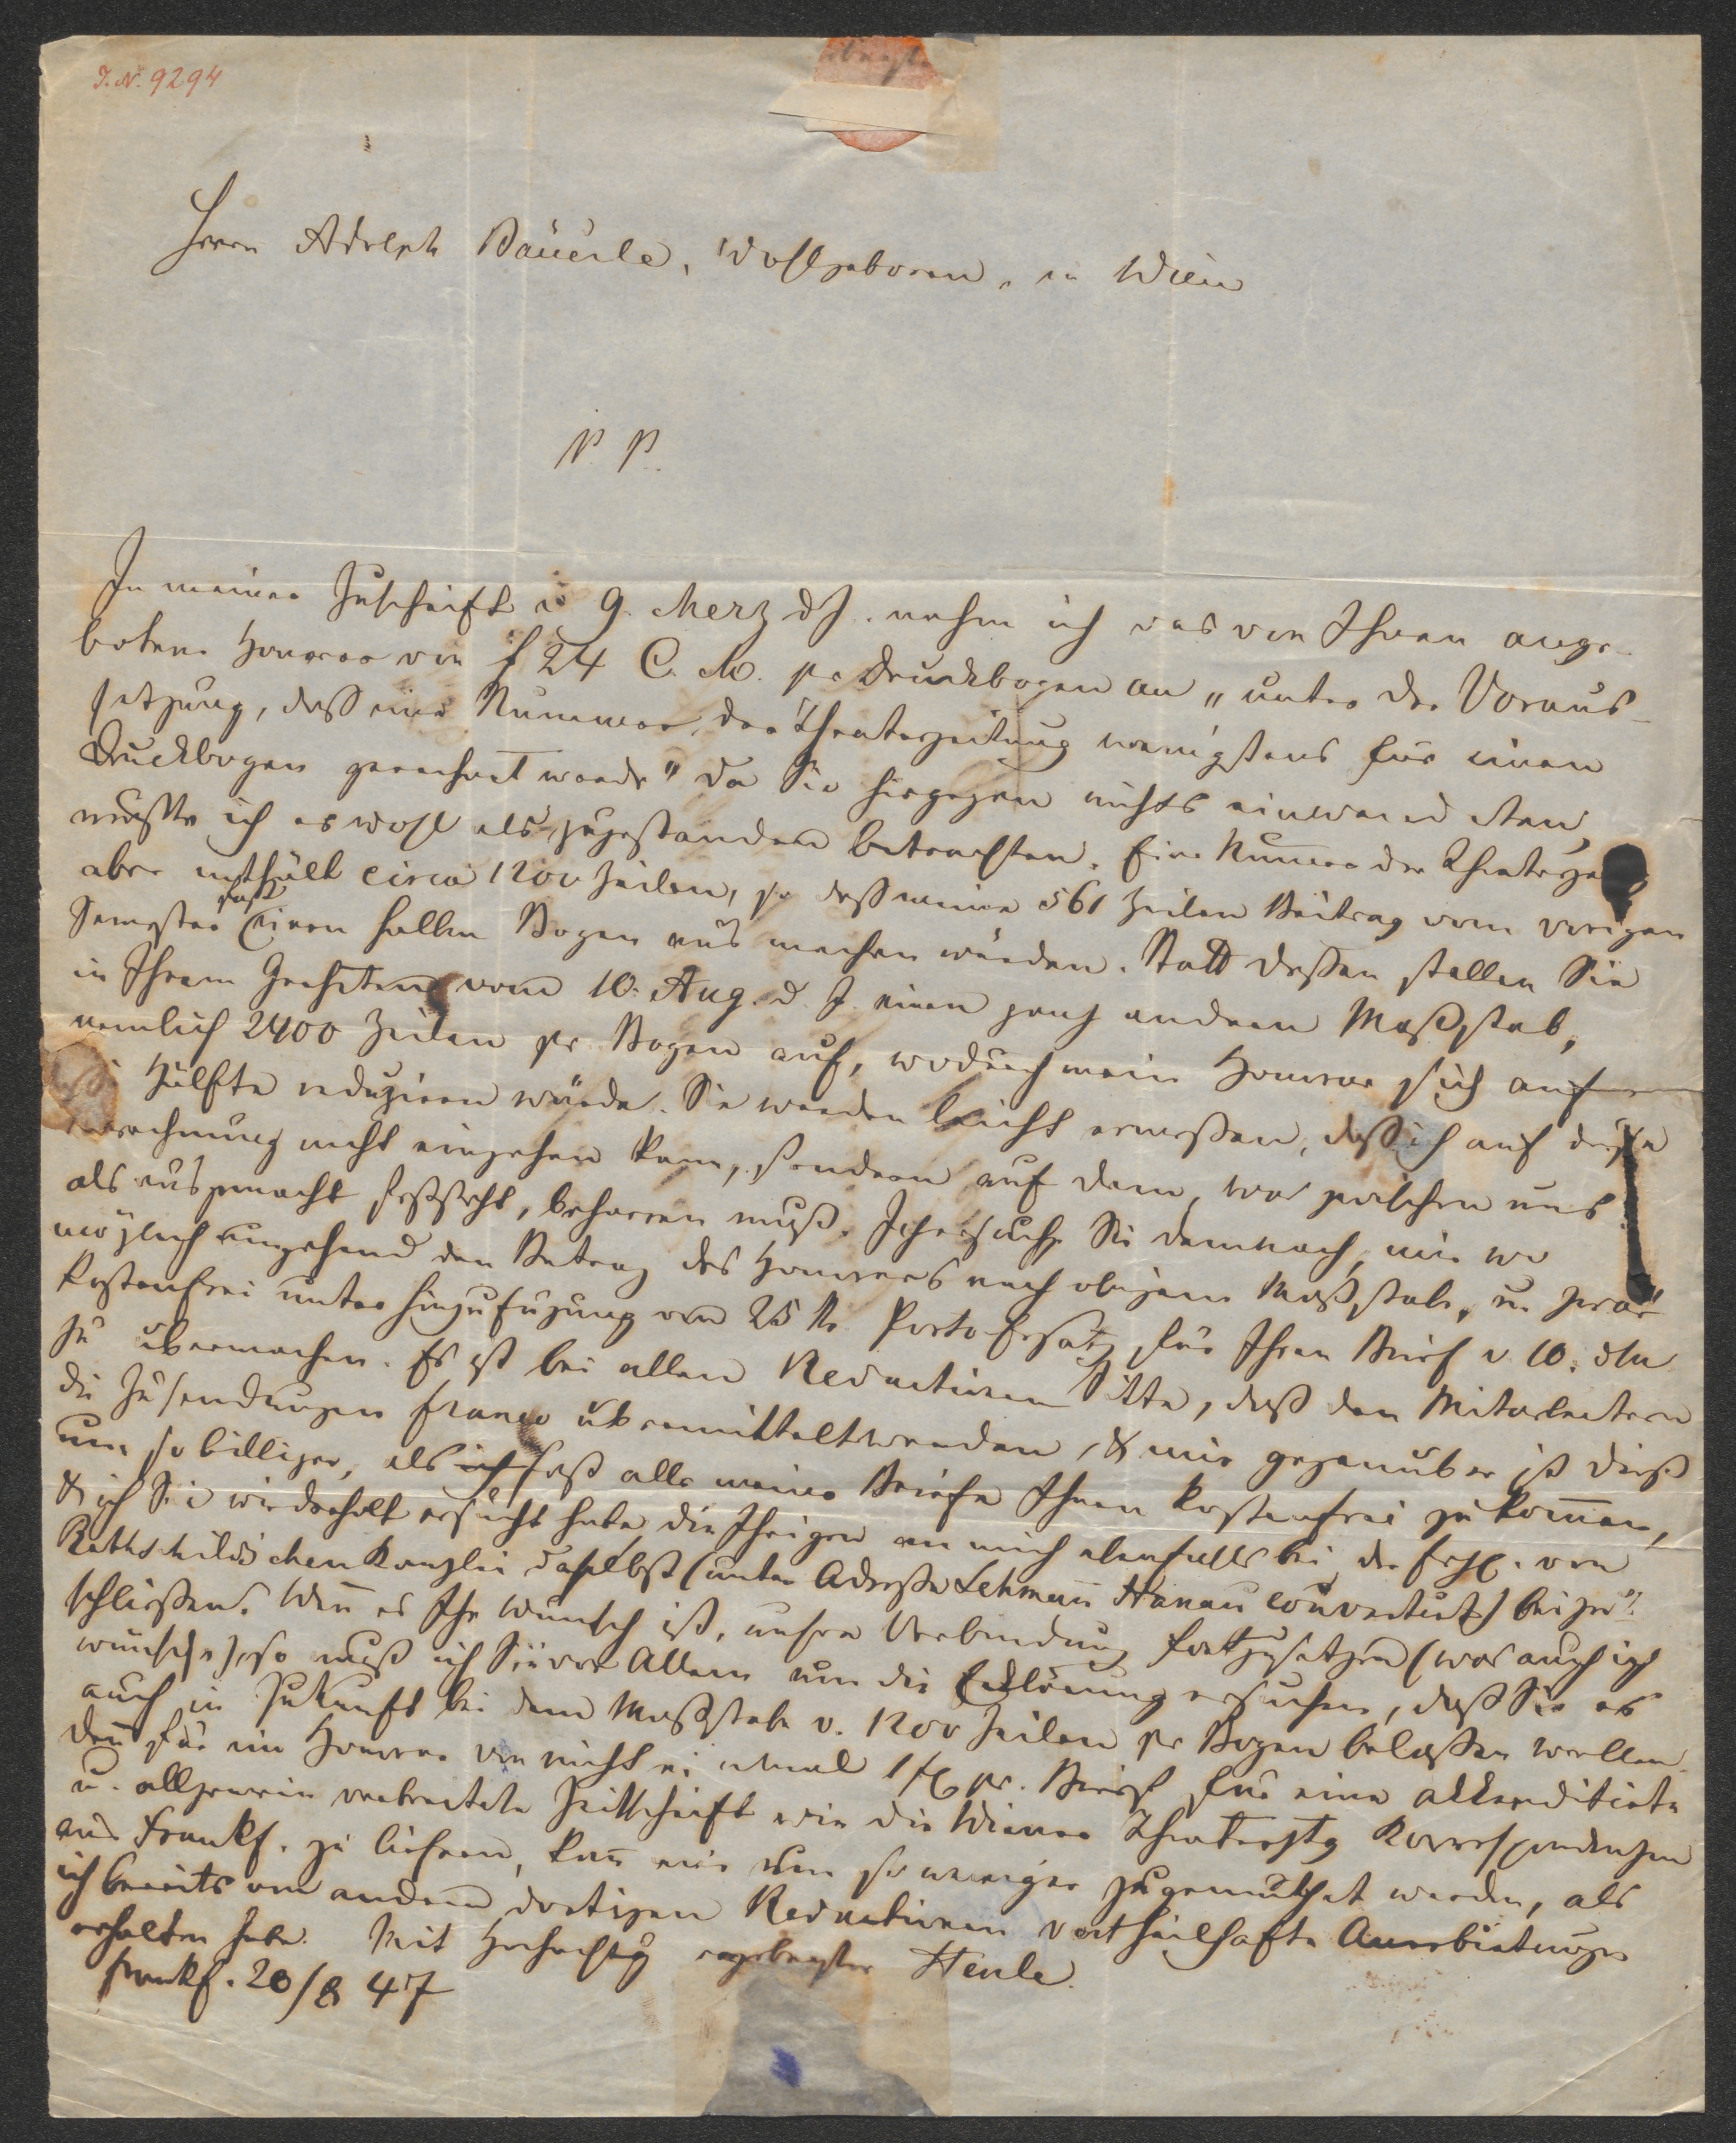 I. N. 9294
Herrn Adolph Bäuerle, Wohlgeboren, in Wien
P. P.
In meiner Zuschrift v 9. Merz d J. nahm ich das von Ihnen ange-
botene Honorar von f 24 C. M. pr Druckbogen an „unter der Voraus-
setzung, daß eine Nummer der Theaterzeitung wenigstens für einen
Druckbogen gerechnet werde" Da Sie hiegegen nichts einwendeten,
mußte ich es wohl als zugestanden betrachten. Eine Num̅er der Theaterze
aber enthält circa 1200 Zeilen, so daß meine 561 Zeilen Beitrag vom vorigen
Semester fast einen halben Bogen aus machen würden. Statt dessen stellen Sie
in Ihrem Geehrten vom 10. Aug. d. J. einen ganz andern Maßstab,
nemlich 2400 Zeilen pr. Bogen auf, wodurch mein Honorar sich auf
Hälfte reduziren würde. Sie werden leicht ermessen, daß ich auf diese
rechnung nicht eingehen kann, sondern auf dem, was zwischen uns
als ausgemacht feststeht, beharren muß. Ich ersuche Sie demnach, mir wo
möglich umgehend den Betrag des Honorars nach obigem Maßstabe, u zwar
kostenfrei unter Hinzufügung von 25 Kr. Porto Ersatz für Ihren Brief v. 10. dM
zu übermachen. Es ist bei allen Redactionen Sitte, daß den Mitarbeitern
die Zusendungen franco übermittelt werden, & mir gegenüber ist dieß
um so billiger, als ich fast alle meine Briefe Ihnen kostenfrei zu kom̅en,
& ich Sie wiederholt ersucht habe die Ihrigen an mich ebenfalls bei der frhl. von
Rothschildschen Kanzlei daselbst (unter Adresse Lehman̅ Hanau couvertirt) beizu-
schließen. Wen̅ es Ihr Wunsch ist, unsere Verbindung fortzusetzen (was auch ich
wünsche), so muß ich Sie vor Allem um die Erklärung ersuchen, daß Sie es
auch in Zukunft bei dem Maßstabe v. 1200 Zeilen pr Bogen belassen wollen.
Den̅ für ein Honorar von nicht einmal 1 f pr. Brief für eine akkreditirte
u. allgemein verbreitete Zeitschrift wie die Wiener Theaterztg Korrespondenzen
aus Frankf. zu liefern, kan̅ mir um so weniger zugemuthet werden, als
ich bereits von andern dortigen Redactionen vortheilhafte Anerbietungen
erhalten habe. Mit Hochachtg ergebenster Henle.
Frankf. 20/8 47